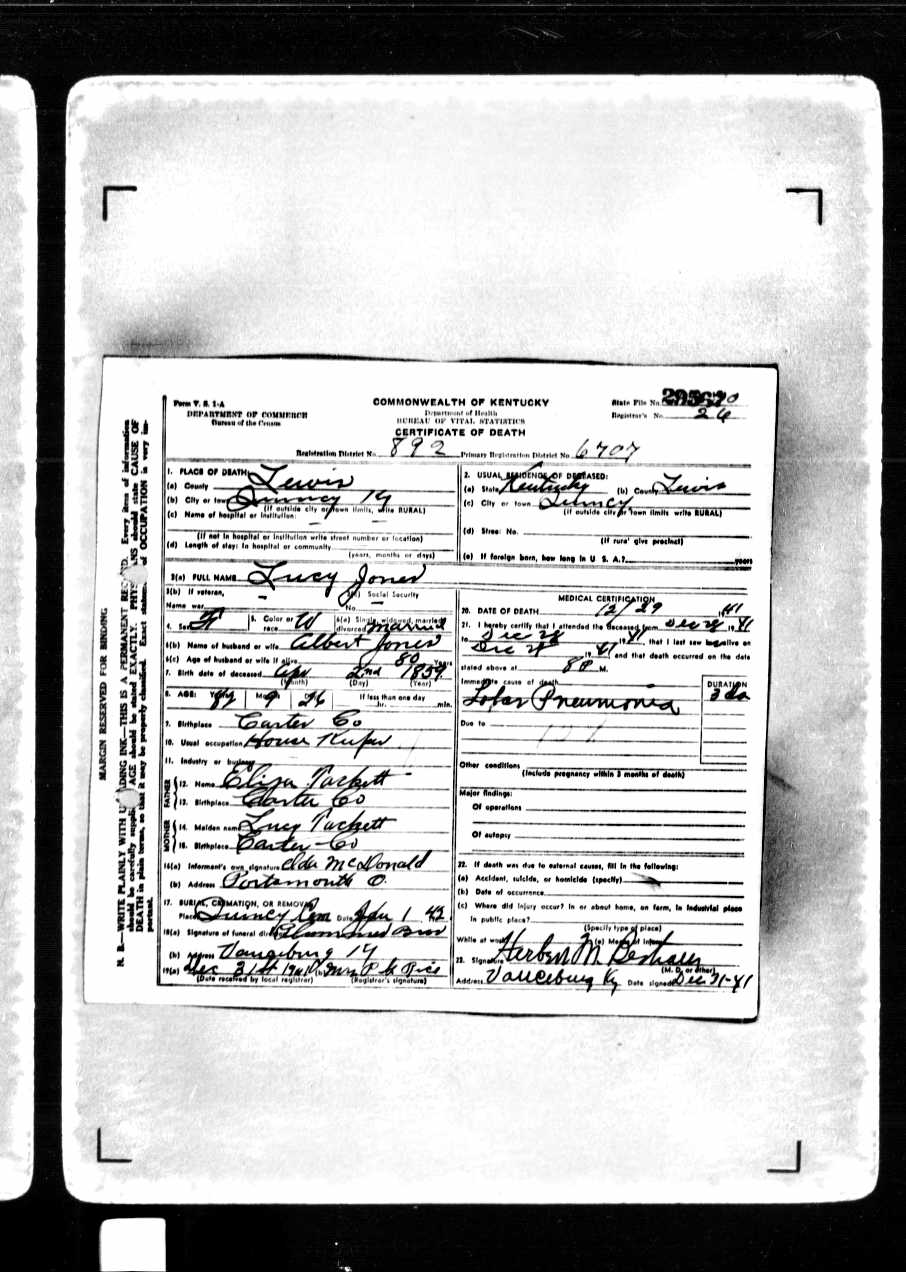 Form V. S. 1-A
DEPARTMENT OF COMMERCE
Bureau of the Census
COMMONWEALTH OF KENTUCKY
Department of Health
BUREAU OF VITAL STATISTICS
CERTIFICATE OF DEATH
State File No.
Registrar's No. 26
Registration District No. 892 Primary Registration District No. 6707
MARGIN RESERVED FOR BINDING
N. B.—WRITE PLAINLY WITH UNFADING INK—THIS IS A PERMANENT RECORD. Every item of information
should be carefully supplied. AGE should be stated EXACTLY. PHYSICIANS should state CAUSE OF
DEATH in plain terms, so that it may be properly classified. Exact statement of OCCUPATION is very im-
portant.
1. PLACE OF DEATH:
(a) County Lewis
(b) City or town Quincy Ky
(If outside city or town limits, write RURAL)
(c) Name of hospital or institution: —
(If not in hospital or institution write street number or location)
(d) Length of stay: In hospital or community
(years, months or days)
2. USUAL RESIDENCE OF DECEASED:
(a) State Kentucky (b) County Lewis
(c) City or town Quincy
(If outside city or town limits write RURAL)
(d) Street No.
(If rural give precinct)
(e) If foreign born, how long in U. S. A.? years
3(a) FULL NAME Lucy Jones
3(b) If veteran,
Name war —
3(c) Social Security
No. —
4. Sex F
5. Color or race W
6(a) Single, widowed, married, divorced married
6(b) Name of husband or wife Albert Jones
6(c) Age of husband or wife if alive 80 Years
7. Birth date of deceased Apr 2nd 1859
(Month) (Day) (Year)
8. AGE: Years 82 Mo. 9 26 If less than one day
hr. min.
9. Birthplace Carter Co
10. Usual occupation House Keeper
11. Industry or business
FATHER
12. Name Eliza Tackett
13. Birthplace Carter Co
MOTHER
14. Maiden name Lucy Tackett
15. Birthplace Carter-Co
16(a) Informant's own signature Ida McDonald
(b) Address Portsmouth O.
17. BURIAL, CREMATION, OR REMOVAL
Place Quincy Cem Date Jan 1 42
18(a) Signature of funeral director Plummer Bros
(b) Address Vanceburg Ky
19(a) Dec 31st 1941 (b) Mrs P G Rice
(Date received by local registrar) (Registrar's signature)
MEDICAL CERTIFICATION
20. DATE OF DEATH 12/29 1941
21. I hereby certify that I attended the deceased from Dec 28 1941
to Dec 28 1941, that I last saw her alive on
Dec 28 1941 and that death occurred on the date
stated above at 8 P M.
Immediate cause of death
DURATION
Lobar Pneumonia 3 da
Due to
Other conditions
(Include pregnancy within 3 months of death)
Major findings:
Of operations
Of autopsy
22. If death was due to external causes, fill in the following:
(a) Accident, suicide, or homicide (specify)
(b) Date of occurrence
(c) Where did injury occur? In or about home, on farm, in industrial place
in public place?
(Specify type of place)
While at work? (e) Means of injury
23. Signature Herbert M
(M. D. or other)
Address Vanceburg Ky Date signed Dec 31-41